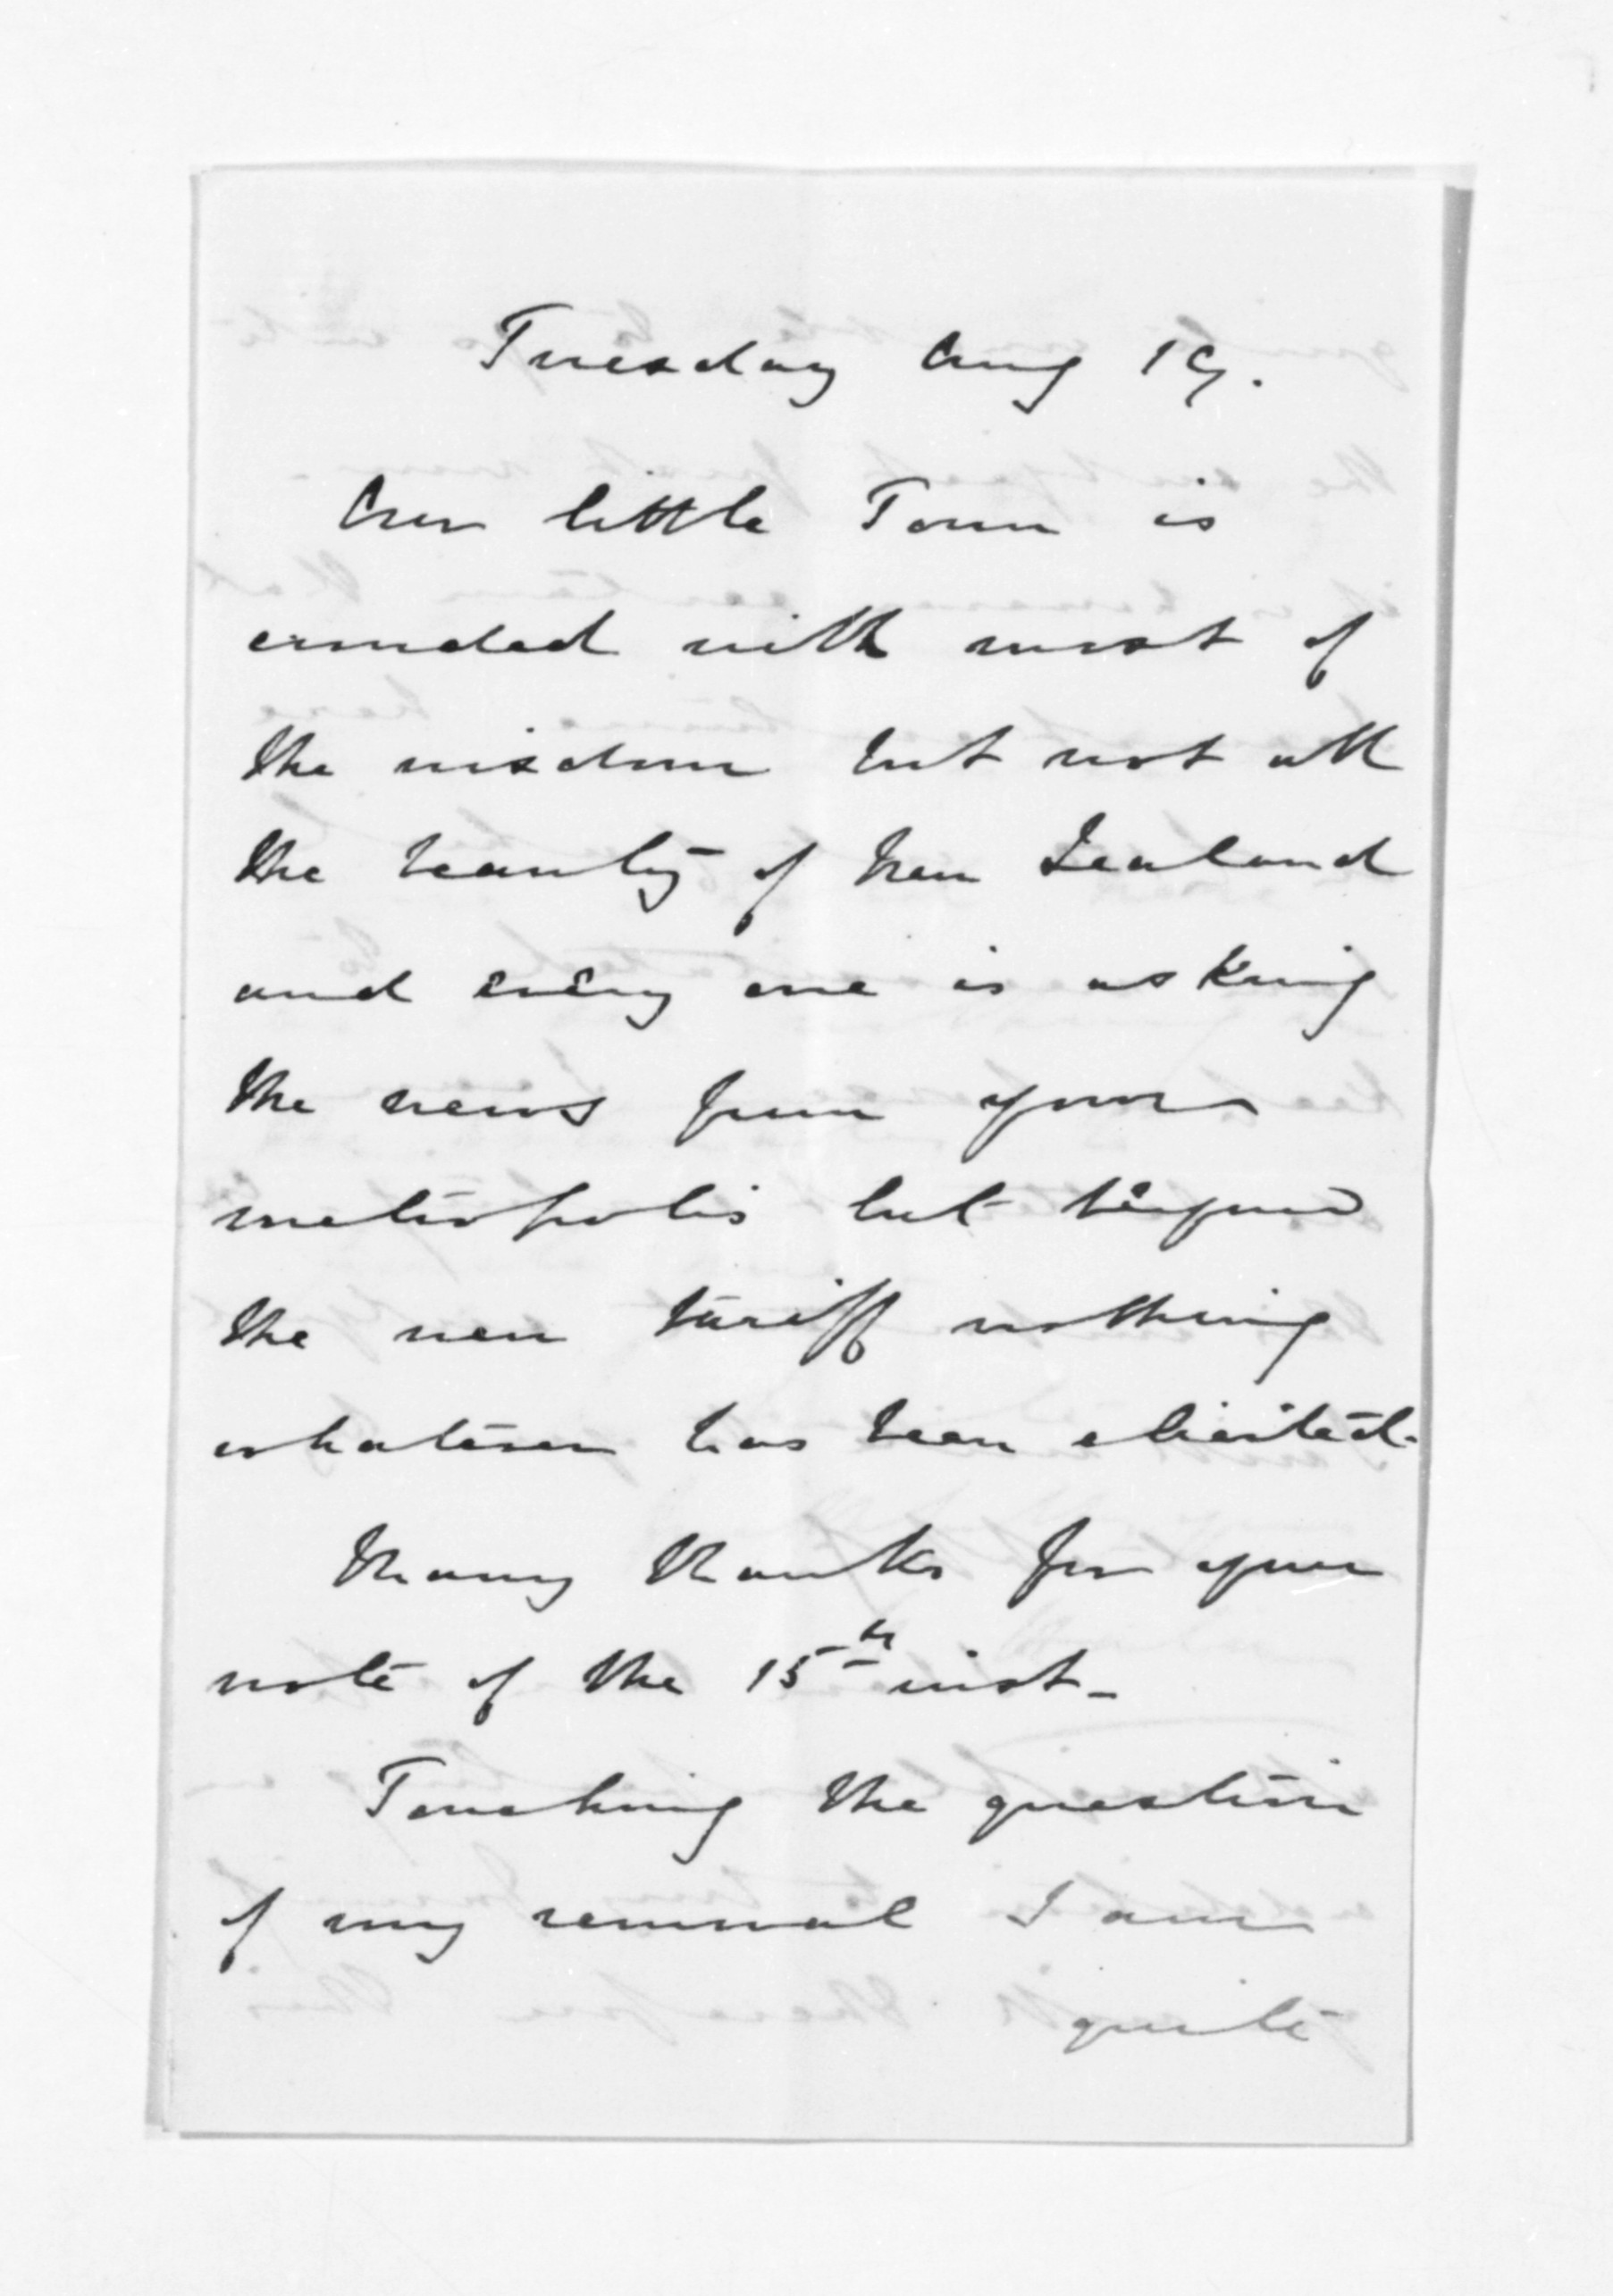 Tuesday Aug 19.
Our little Town is
crowded with most of
the wisdom but not all
the beauty of New Zealand
and every one is asking
the news from your
metropolis but beyond
the new tariff nothing
whatever has been elicited.
Many thanks for your
note of the 15th inst -
Touching the question
of my removal I am
quite